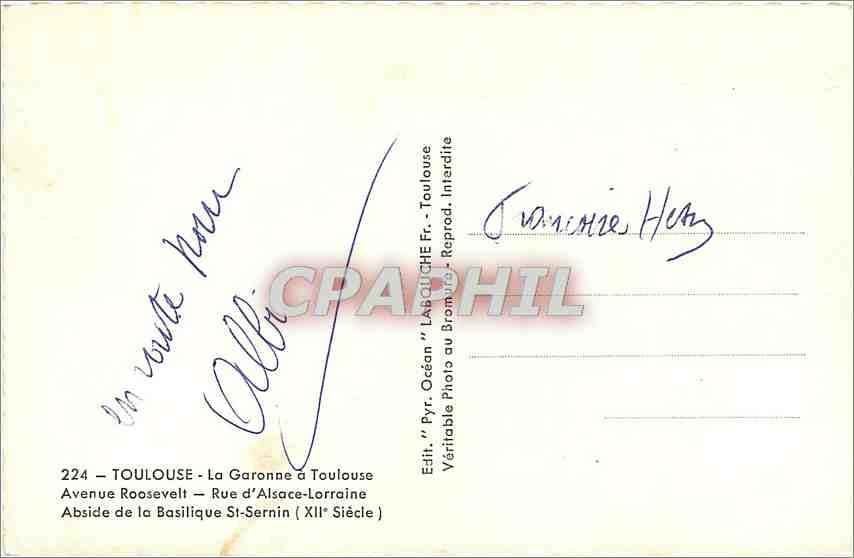 en route pour
Albi.
224 — TOULOUSE - La Garonne à Toulouse
Avenue Roosevelt — Rue d'Alsace-Lorraine
Abside de la Basilique St-Sernin ( XIIe Siècle )
Edit. " Pyr. Océan " LABOUCHE Fr. - Toulouse
Véritable Photo au Bromure - Reprod. Interdite
CPAPHIL